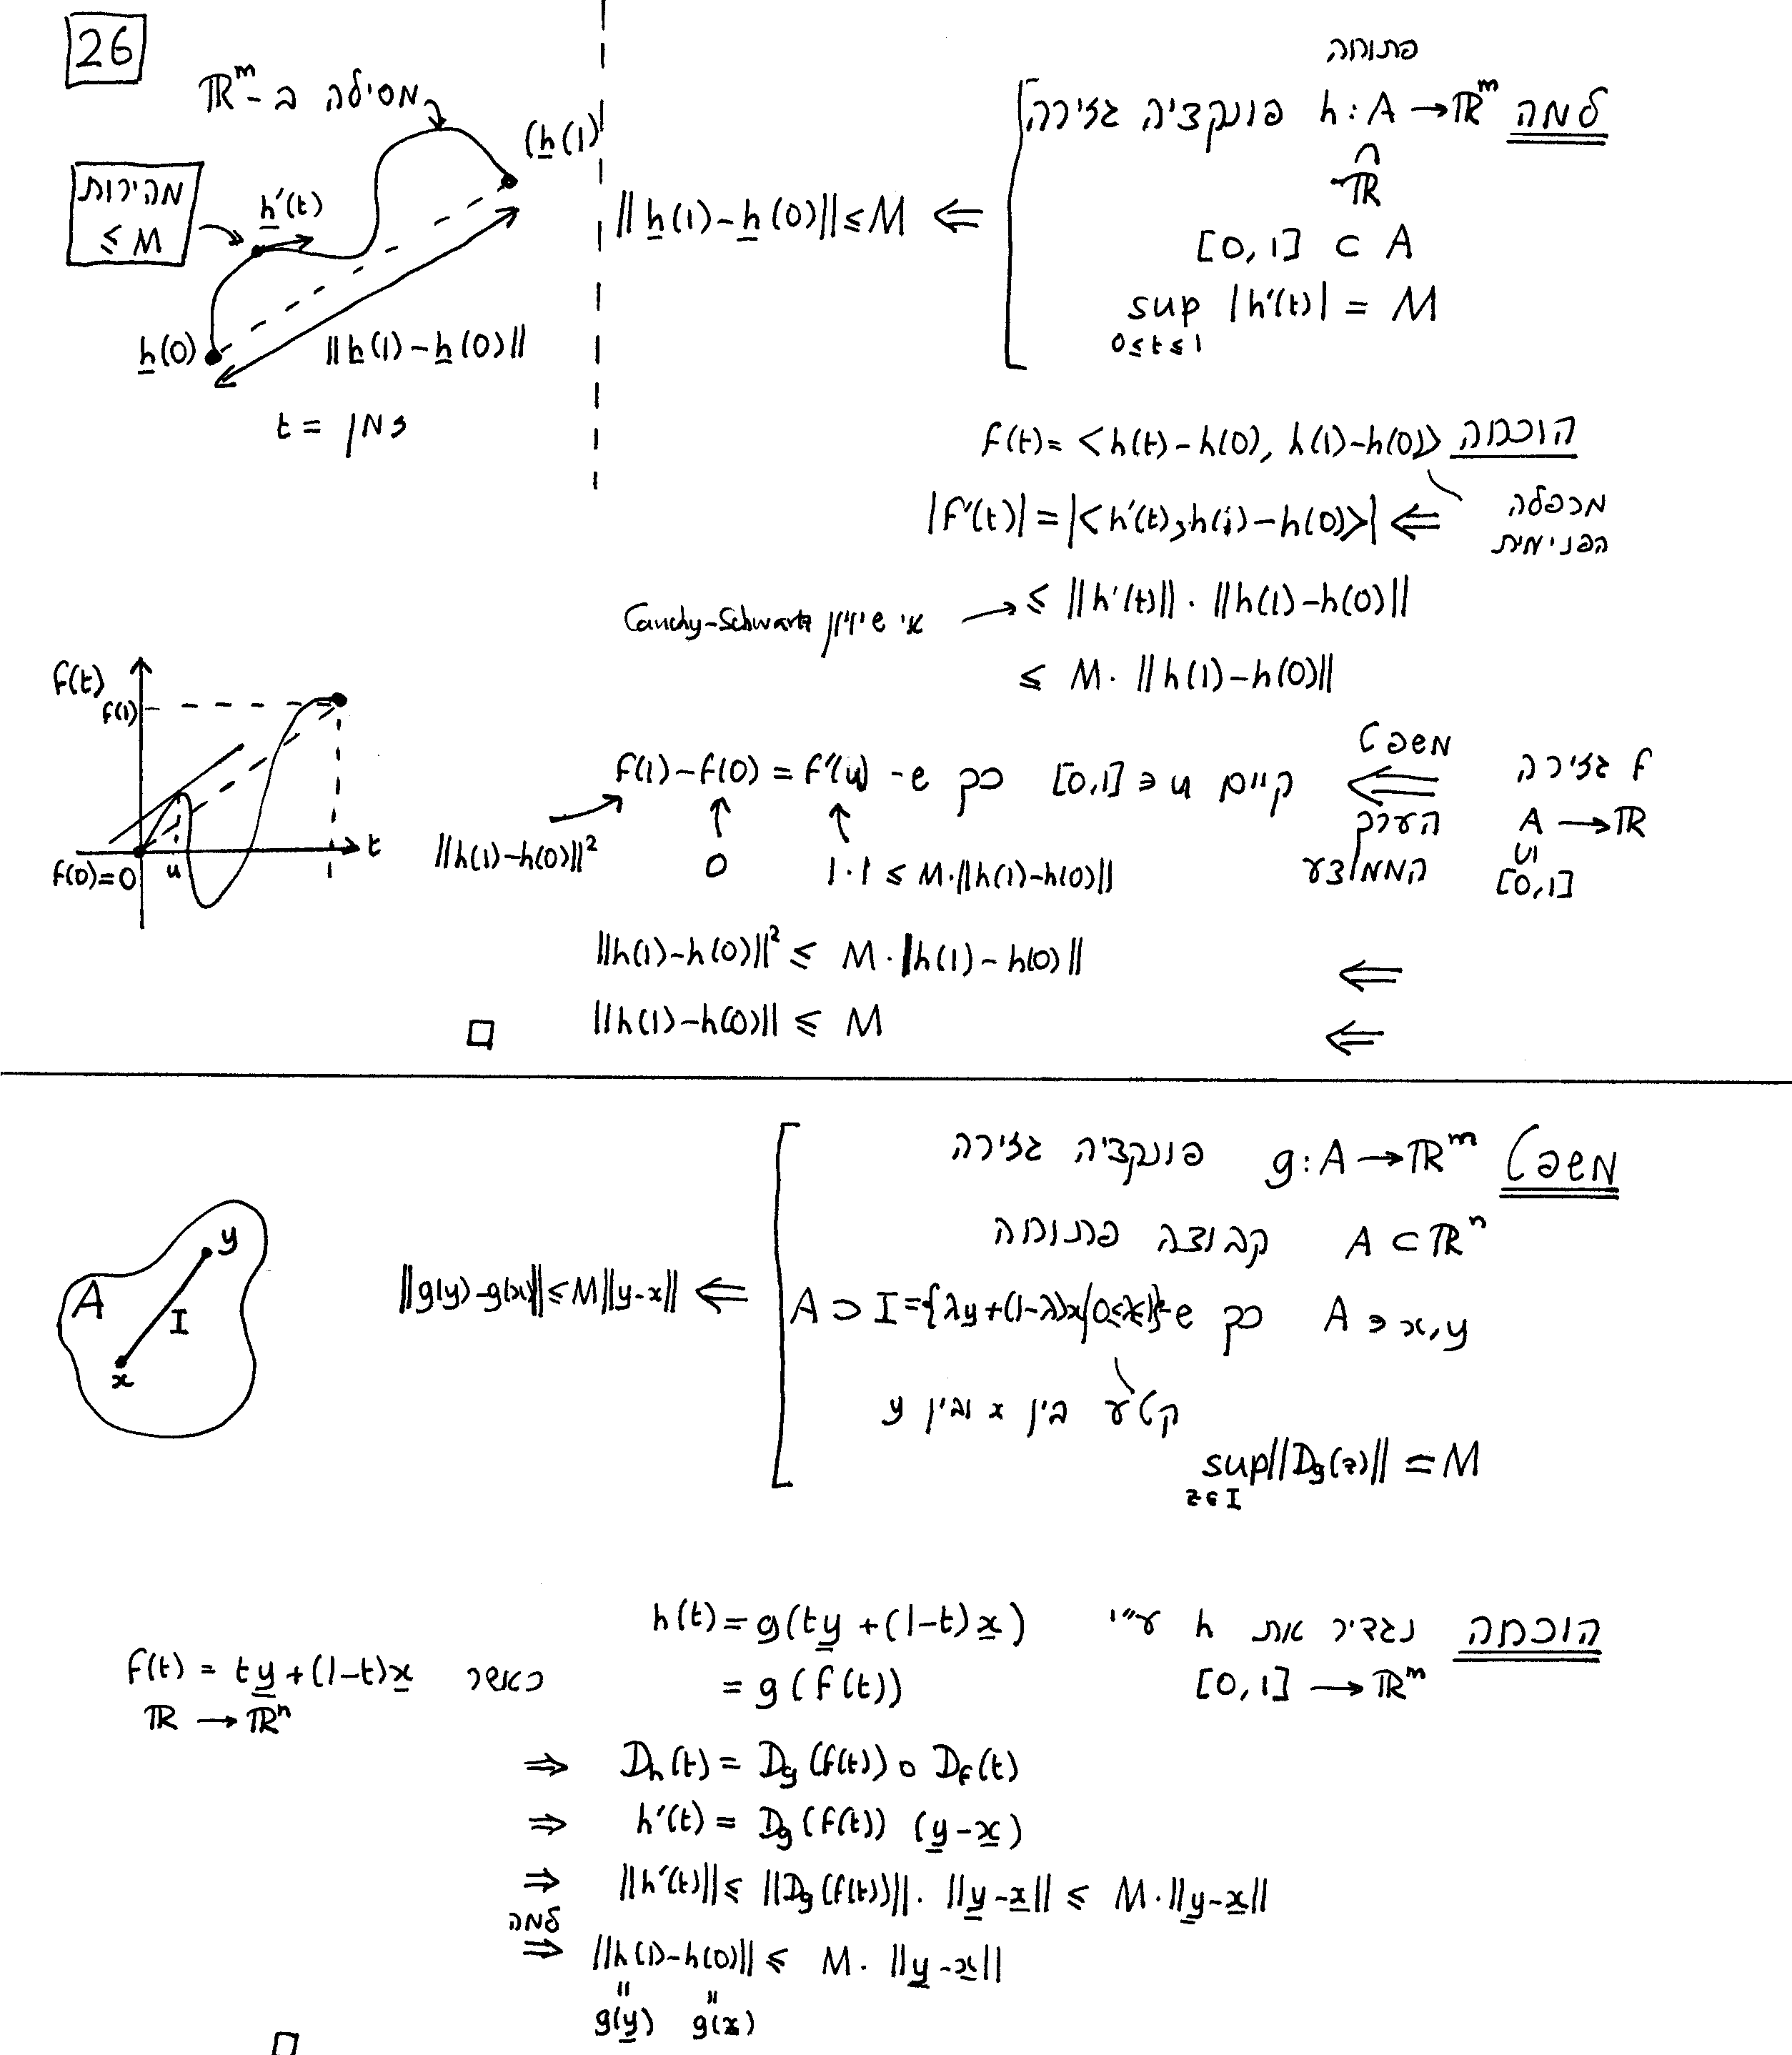 26
מסילה ב- ℝᵐ
h(1)
מהירות
≤ M
h'(t)
h(0)
||h(1)-h(0)||
t = זמן
פתוחה
למה h: A → ℝᵐ פונקציה גזירה
∩
ℝ
[0,1] ⊂ A
sup |h'(t)| = M
0≤t≤1
⇐ ||h(1)-h(0)|| ≤ M
הוכחה f(t) = <h(t)-h(0), h(1)-h(0)>
מכפלה
הפנימית
⇐ |f'(t)| = |<h'(t), h(1)-h(0)>|
≤ ||h'(t)|| · ||h(1)-h(0)||
אי שיויון Cauchy-Schwartz
≤ M · ||h(1)-h(0)||
f גזירה
A → ℝ
∪|
[0,1]
משפט
⇐
הערך
הממוצע
קיים u ∈ [0,1] כך ש- f(1)-f(0) = f'(u)
||h(1)-h(0)||²
0
|·| ≤ M·||h(1)-h(0)||
f(t)
f(1)
t
f(0)=0
u
1
⇐ ||h(1)-h(0)||² ≤ M·||h(1)-h(0)||
⇐ ||h(1)-h(0)|| ≤ M
□
משפט g: A → ℝᵐ פונקציה גזירה
A ⊂ ℝⁿ קבוצה פתוחה
x,y ∈ A כך ש- A ⊃ I = {λy+(1-λ)x | 0≤λ≤1}
קטע בין x ובין y
sup ||Dg(z)|| = M
z∈I
⇐ ||g(y)-g(x)|| ≤ M||y-x||
A
y
I
x
הוכחה נגדיר את h ע"י h(t) = g(ty + (1-t)x)
[0,1] → ℝᵐ
= g(f(t))
כאשר f(t) = ty + (1-t)x
ℝ → ℝⁿ
⇒ Dh(t) = Dg(f(t)) ∘ Df(t)
⇒ h'(t) = Dg(f(t)) (y-x)
⇒ ||h'(t)|| ≤ ||Dg(f(t))|| · ||y-x|| ≤ M·||y-x||
למה
⇒ ||h(1)-h(0)|| ≤ M · ||y-x||
g(y) g(x)
□